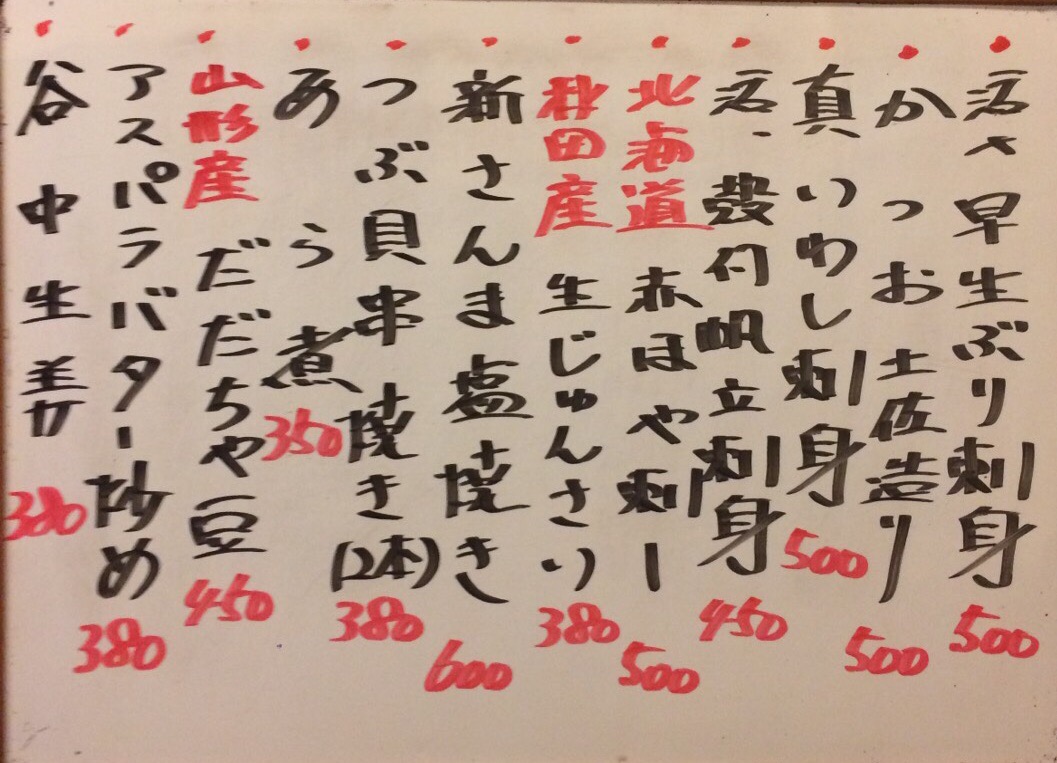 活〆早生ぶり刺身 500
かつお土佐造り 500
真いわし刺身 500
活、殻付帆立刺身 450
北海道 赤ほや刺し 500
秋田産 生じゅんさい 380
新さんま塩焼き 600
つぶ貝串焼き(2本) 380
あら煮 350
山形産 だだちゃ豆 450
アスパラバター炒め 380
谷中生姜 380